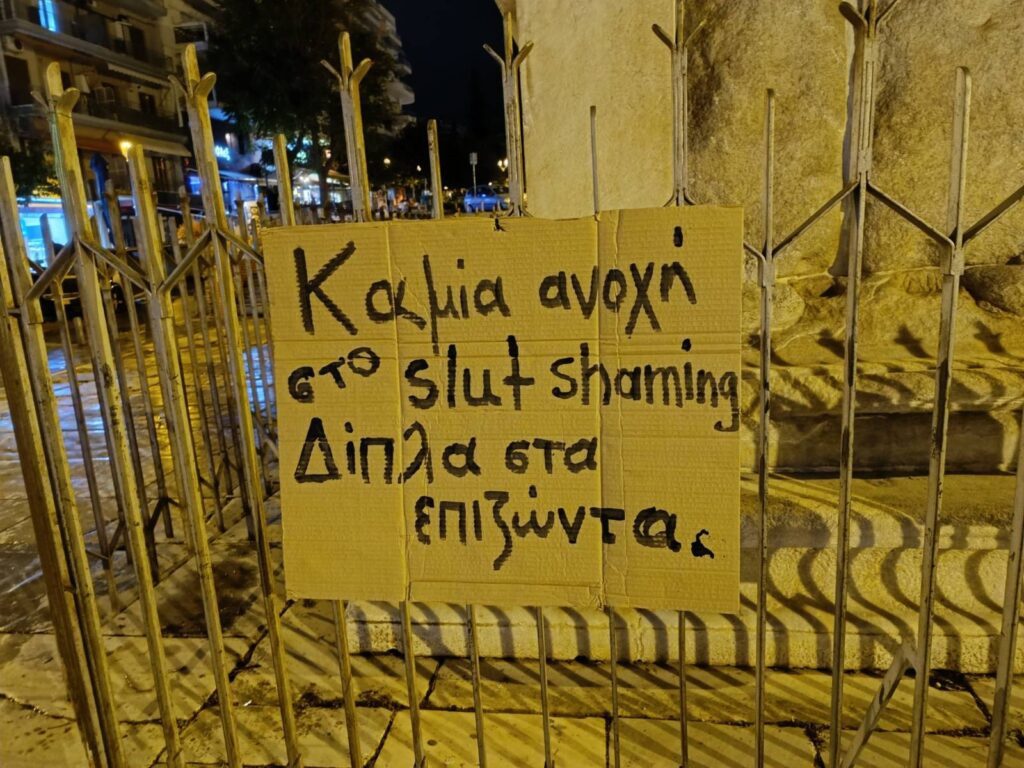 Καμία ανοχή
στο slut shaming
Δίπλα στα
επιζώντα.